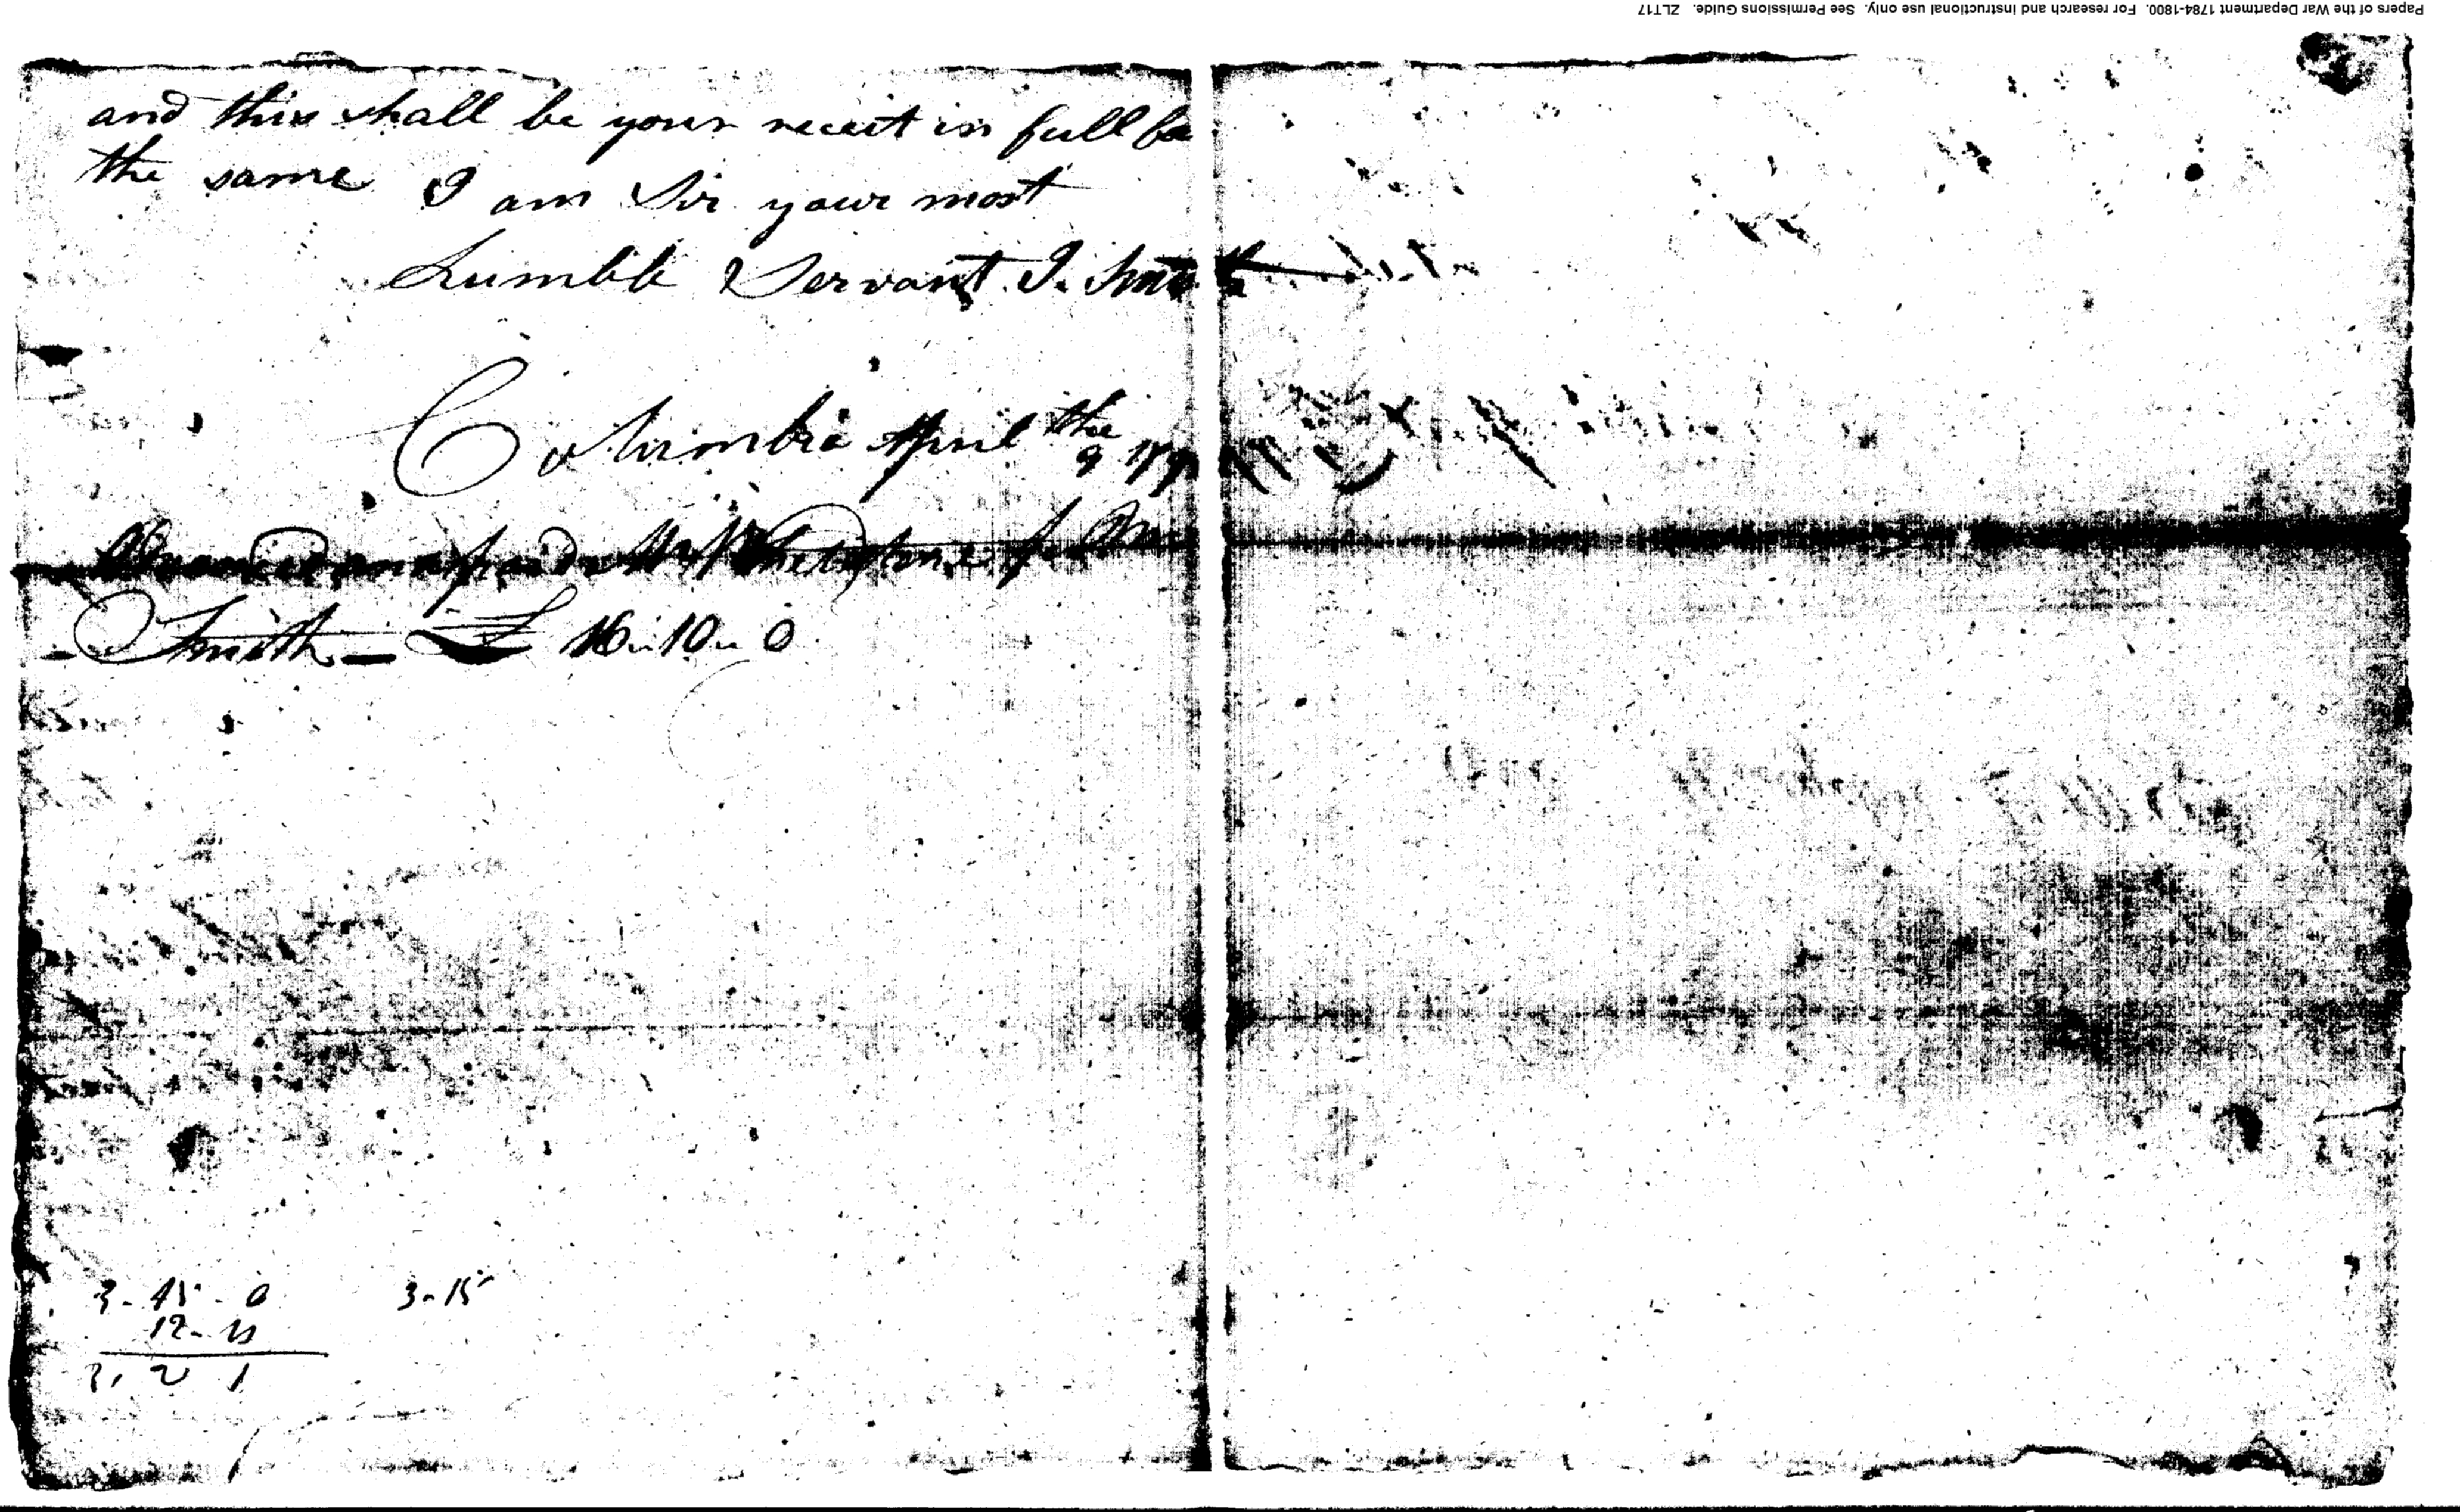 and this shall be your receit in full for
the same I am Sir your most
humble Servant J. Smith
Columbia April the 9 179
paid Mr
Smith — £ 16 " 10 " 0
3 - 15 - 0 3 - 15
12 - 11
3, 2 1
Papers of the War Department 1784-1800. For research and instructional use only. See Permissions Guide. ZLT17